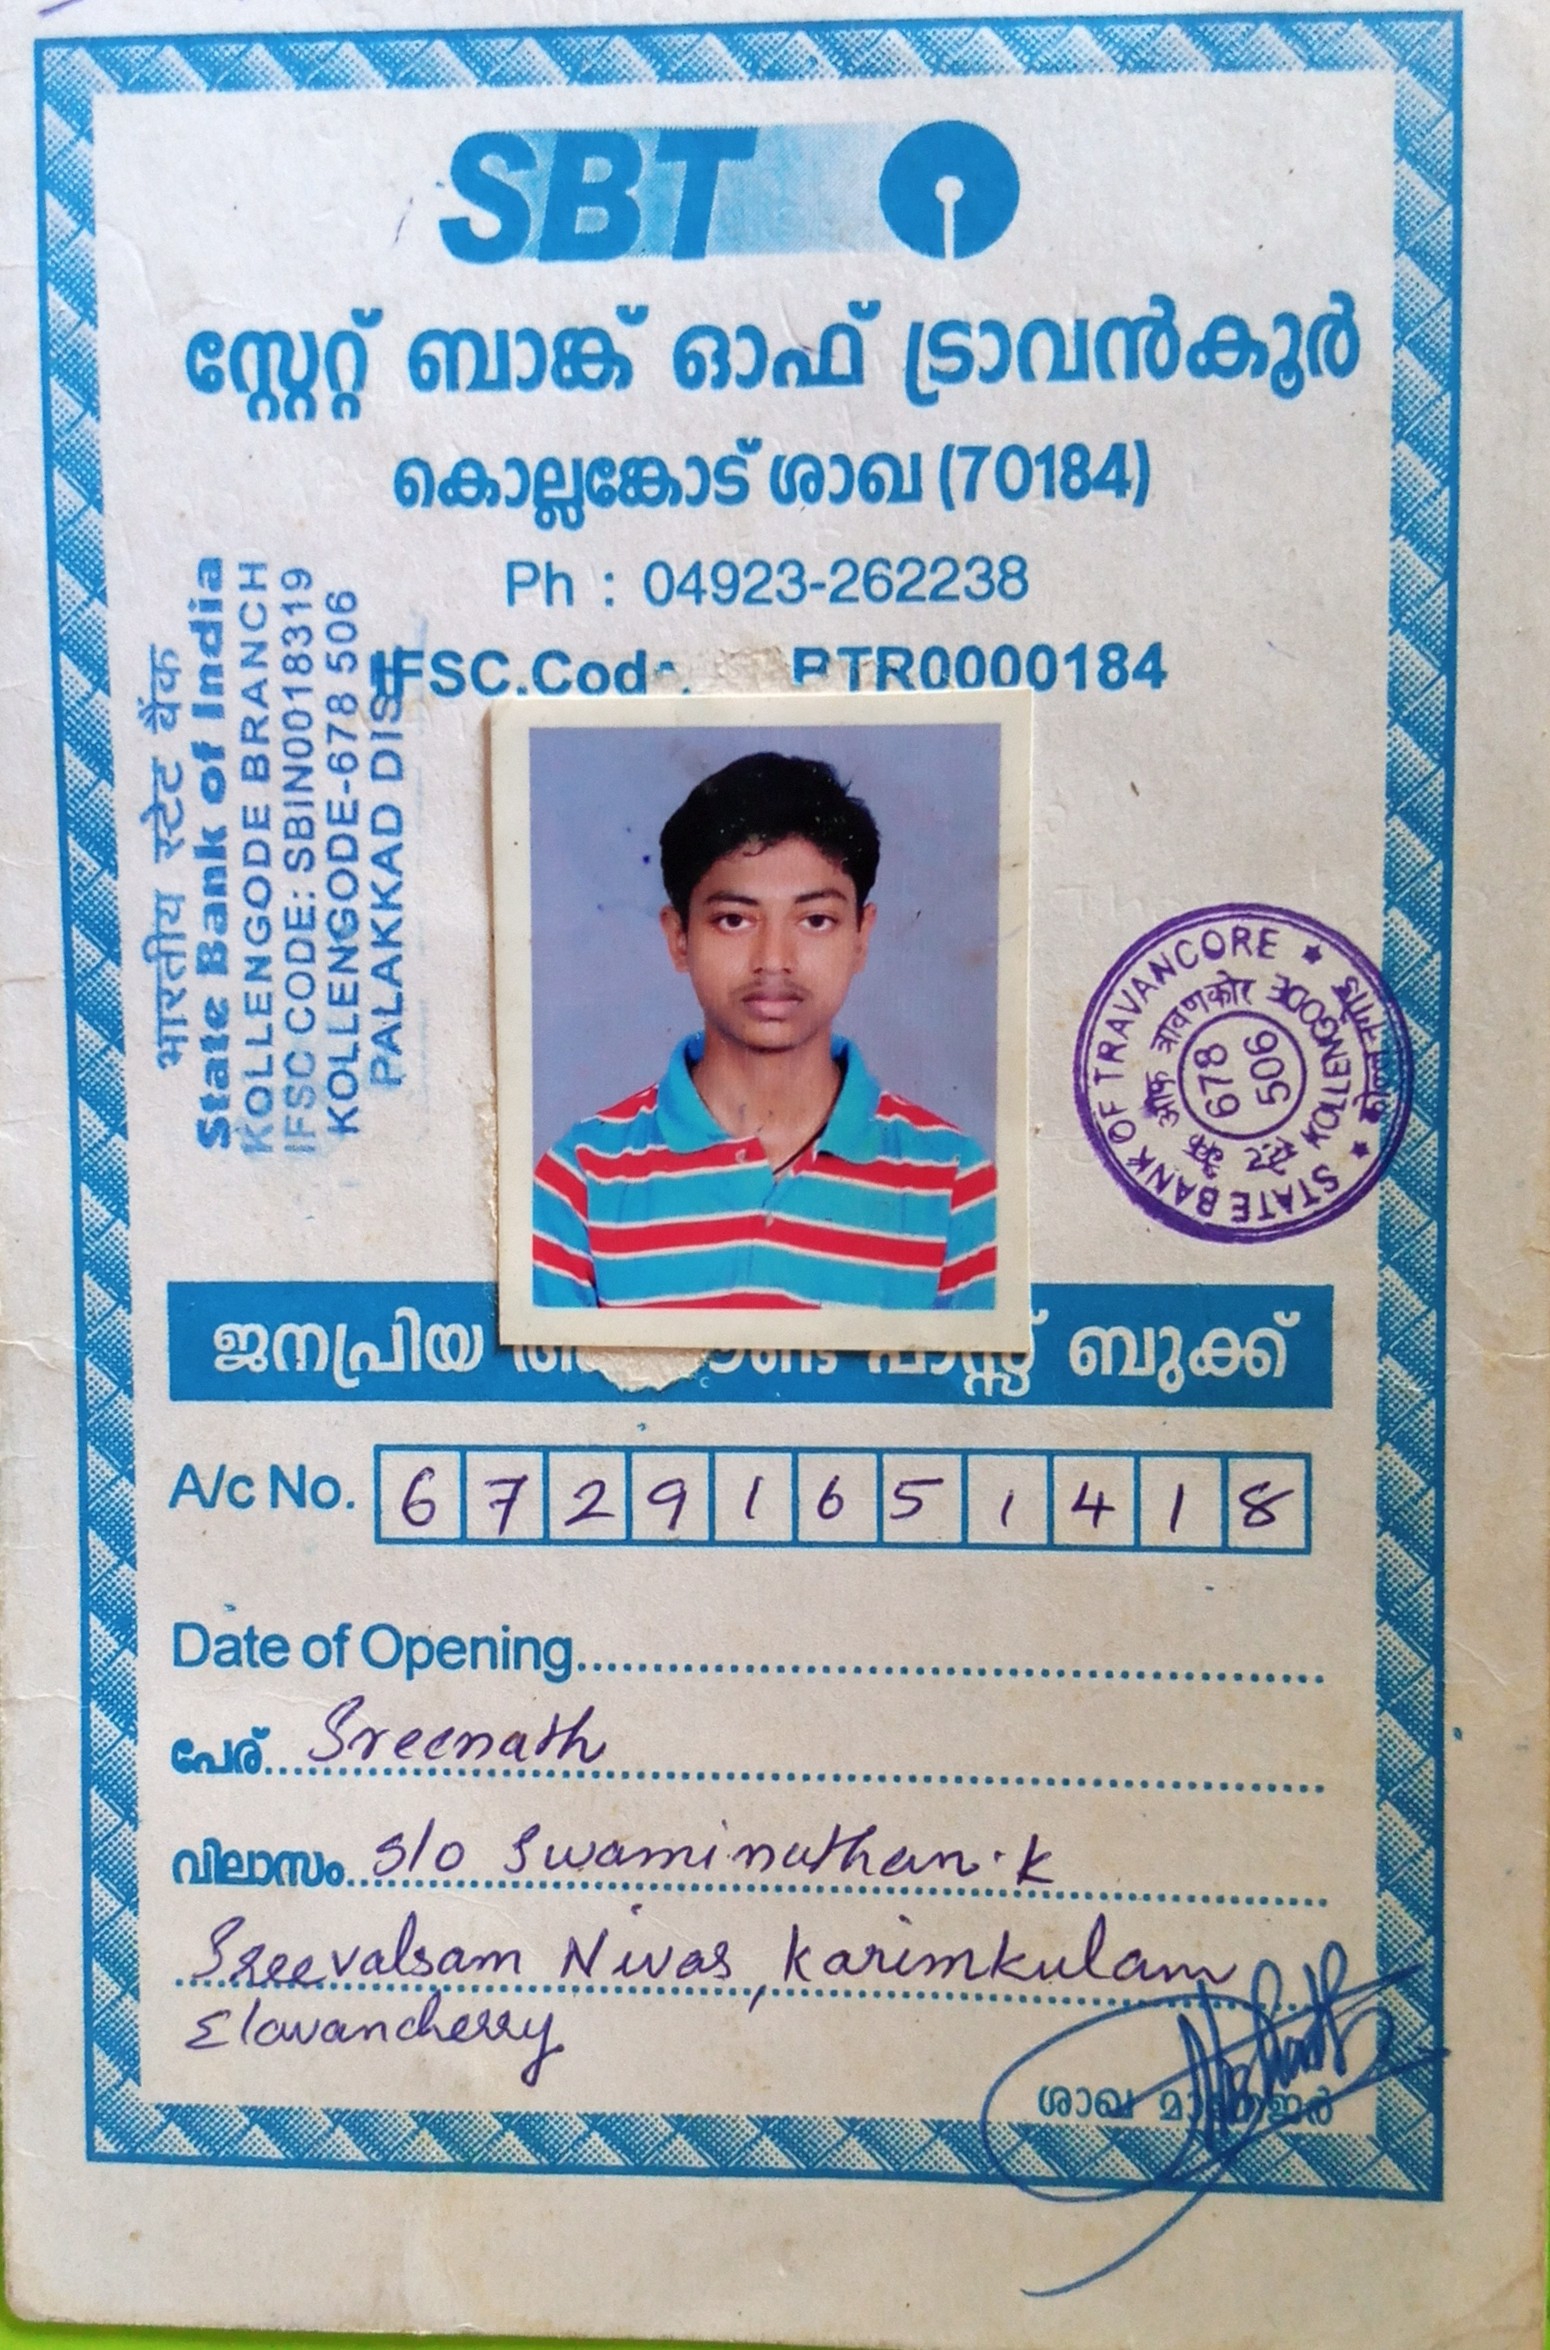 SBT
സ്റ്റേറ്റ് ബാങ്ക് ഓഫ് ട്രാവൻകൂർ
കൊല്ലങ്കോട് ശാഖ (70184)
Ph : 04923-262238
IFSC.Code BTR0000184
भारतीय स्टेट बैंक
State Bank of India
KOLLENGODE BRANCH
IFSC CODE: SBIN0018319
KOLLENGODE-678 506
PALAKKAD DIST
STATE BANK OF TRAVANCORE
स्टेट बैंक ऑफ त्रावणकोर
KOLLENGODE
678
506
ജനപ്രിയ പാസ്സ് ബുക്ക്
A/c No. 67291651418
Date of Opening
പേര് Sreenath
വിലാസം S/o Swaminathan.K
Sreevalsam Nivas, Karimkulam
Elavancherry
ശാഖ മാനേജർ